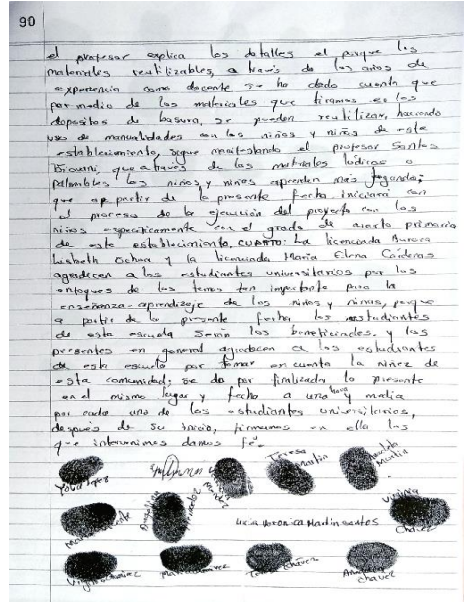 90
el profesor explica los detalles el porque los
materiales reutilizables, a través de los años de
experiencia como docente se ha dado cuenta que
por medio de los materiales que tiramos en los
depositos de basura, se pueden reutilizar, haciendo
uso de manualidades con los niños y niñas de este
establecimiento, sigue manifestando el profesor Santos
que a través de los materiales ludicos o
palmables los niños y niñas aprenden más jugando;
que a partir de la presente fecha iniciará con
el proceso de la ejecución del proyecto con los
niños especificamente con el grado de cuarto primaria
de este establecimiento. CUARTO: La licenciada Aurora
Lisbeth Ochoa y la licenciada María Elena
agradecen a los estudiantes universitarios por los
enfoques de los temas tan importante para la
enseñanza-aprendizaje de los niños y niñas, porque
a partir de la presente fecha los estudiantes
de esta escuela serán los beneficiados. y los
presentes en general agradecen a los estudiantes
de esta escuela por tomar en cuenta la niñez de
esta comunidad; se da por finalizada la presente
en el mismo lugar y fecha a una hora y media
por cada uno de los estudiantes universitarios,
después de su inicio, firmamos en ella los
que intervenimos damos fé.
Teresa Martin
Martin
Virginia Chávez
Chávez